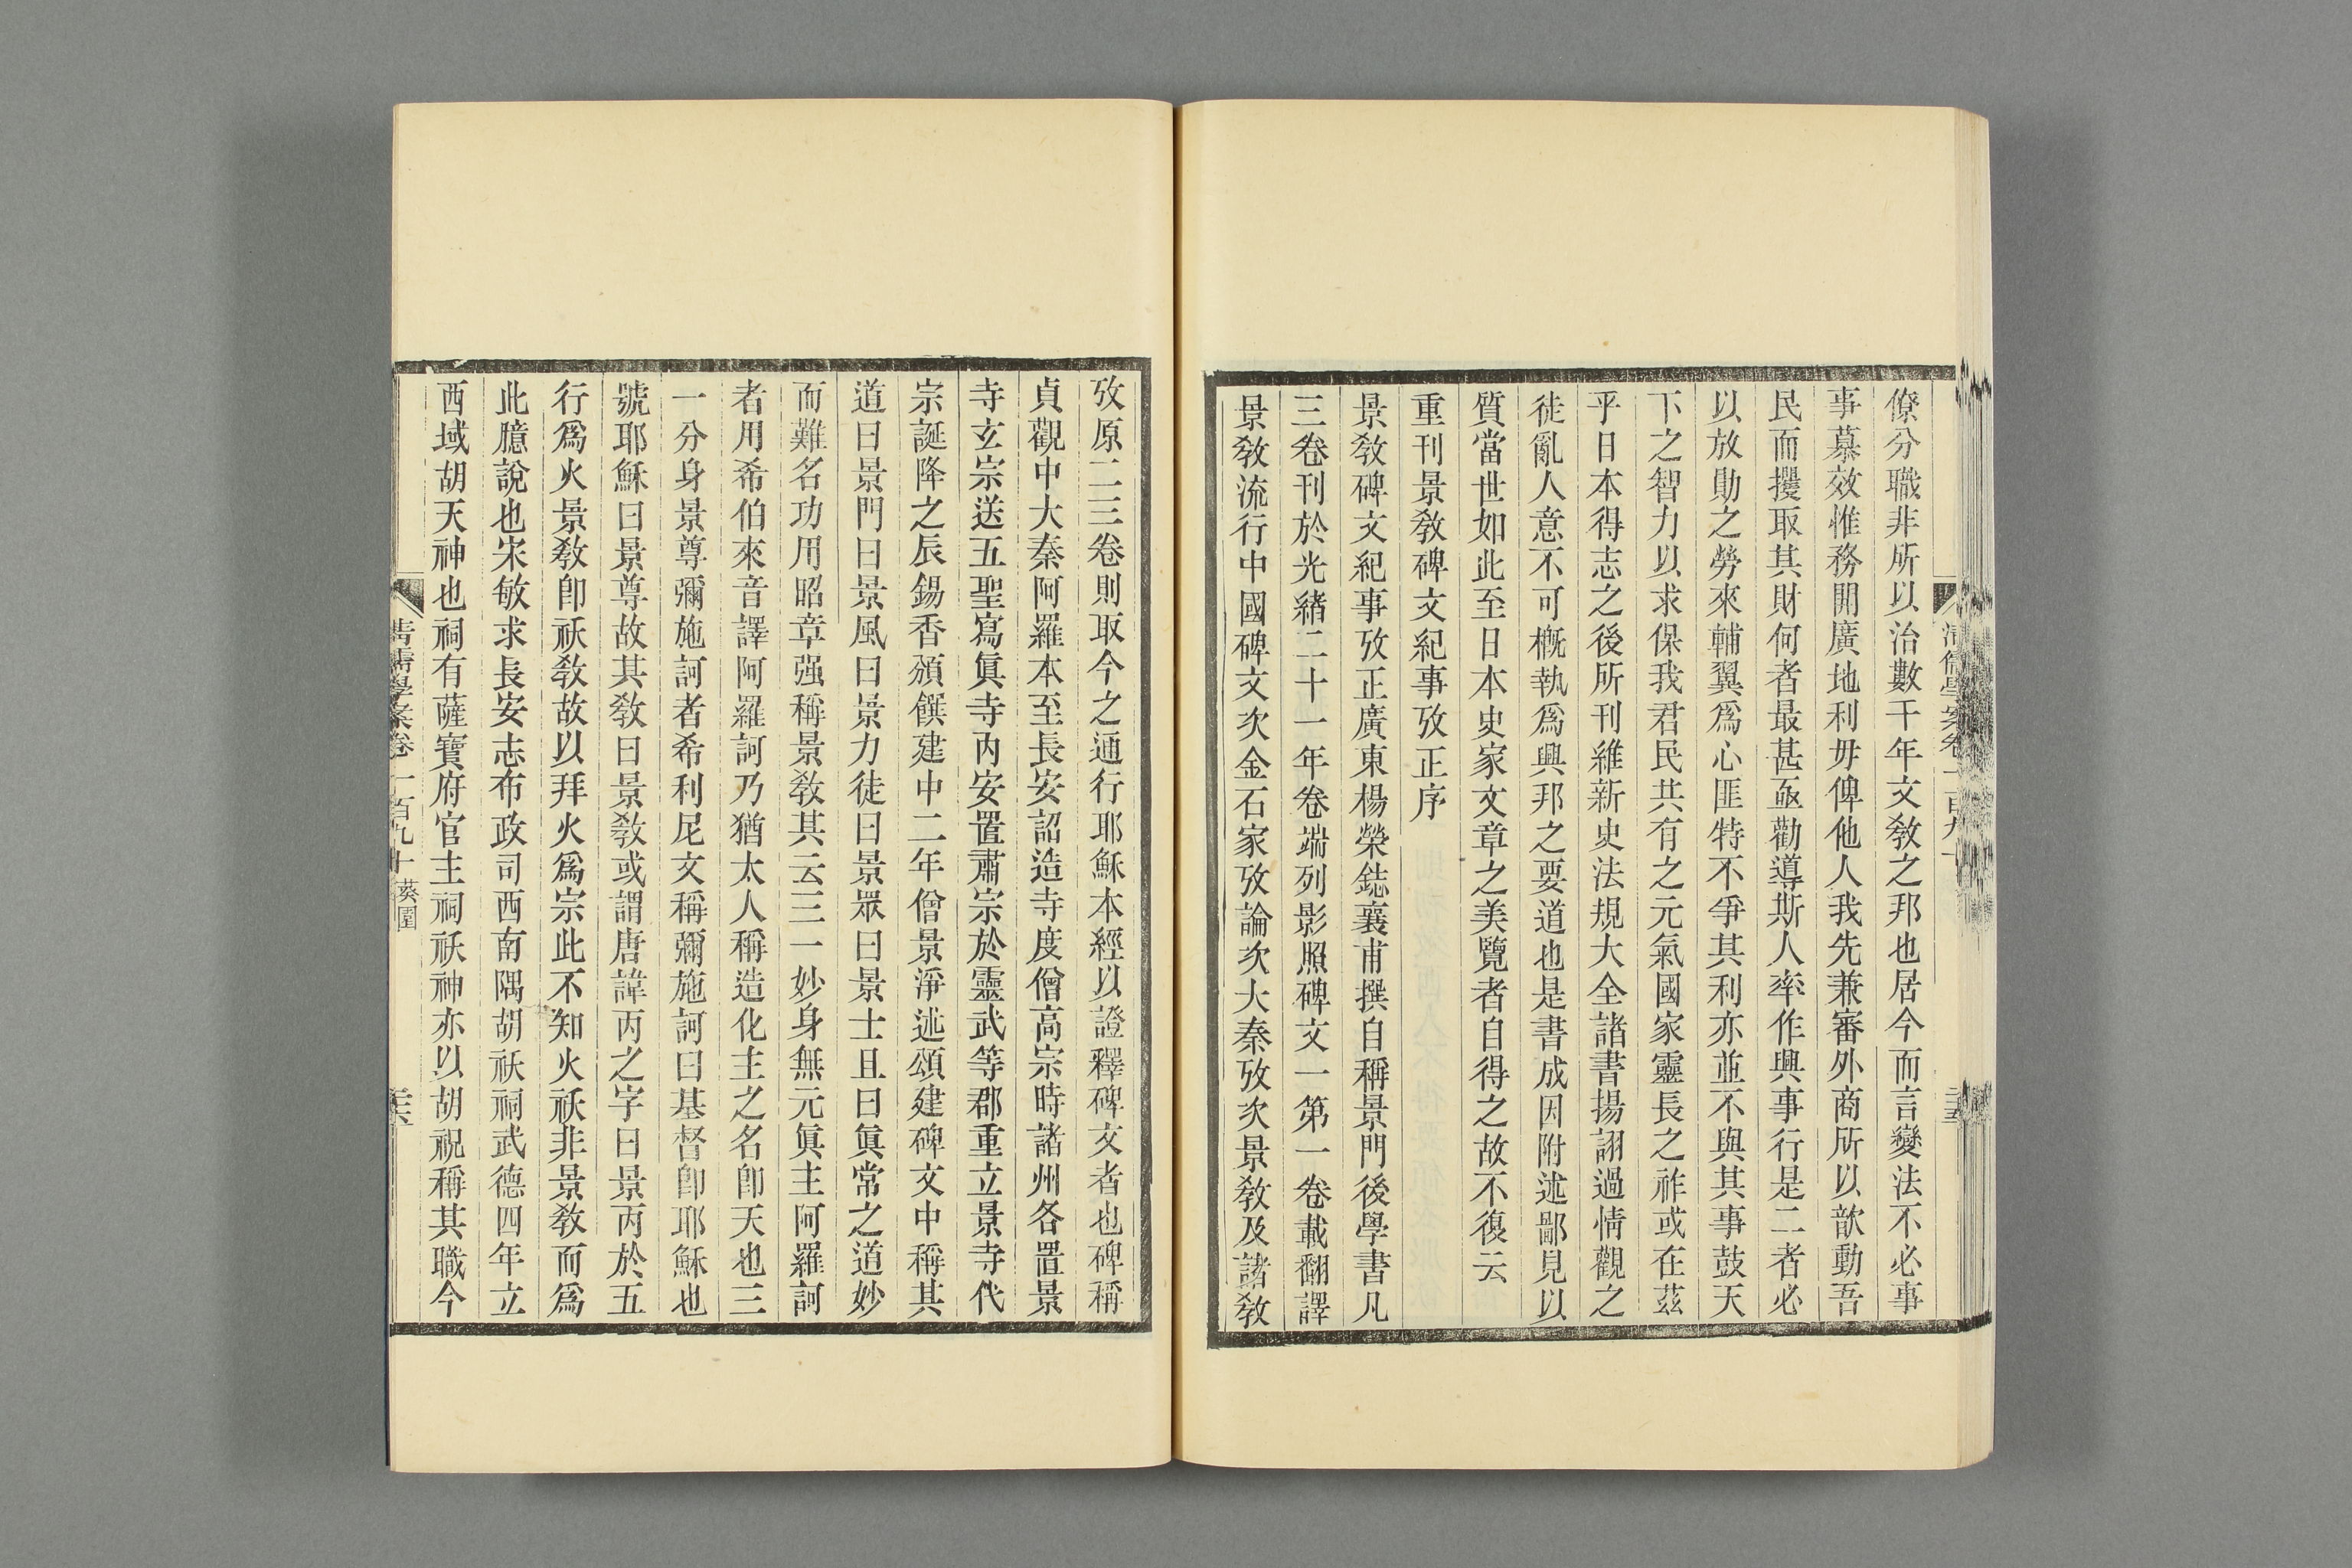 僚分職非所以治數千年文敎之邦也居今而言變法不必事
事慕效惟務開廣地利毋俾他人我先兼審外商所以歆動吾
民而攫取其財何者最甚亟勸導斯人率作興事行是二者必
以放勛之勞來輔翼爲心匪特不爭其利亦並不與其事鼓天
下之智力以求保我君民共有之元氣國家靈長之祚或在茲
乎日本得志之後所刊維新史法規大全諸書揚詡過情觀之
徒亂人意不可概執爲興邦之要道也是書成因附述鄙見以
質當世如此至日本史家文章之美覽者自得之故不復云
重刊景敎碑文紀事攷正序
景敎碑文紀事攷正廣東楊榮鋕襄甫撰自稱景門後學書凡
三卷刊於光緖二十一年卷端列影照碑文一第一卷載翻譯
景敎流行中國碑文次金石家攷論次大秦攷次景敎及諸敎
攷原二三卷則取今之通行耶穌本經以證釋碑文者也碑稱
貞觀中大秦阿羅本至長安詔造寺度僧高宗時諸州各置景
寺玄宗送五聖寫眞寺內安置肅宗於靈武等郡重立景寺代
宗誕降之辰錫香頒饌建中二年僧景淨述頌建碑文中稱其
道曰景門曰景風曰景力徒曰景眾曰景士且曰眞常之道妙
而難名功用昭章强稱景敎其云三一妙身無元眞主阿羅訶
者用希伯來音譯阿羅訶乃猶太人稱造化主之名卽天也三
一分身景尊彌施訶者希利尼文稱彌施訶曰基督卽耶穌也
號耶穌曰景尊故其敎曰景敎或謂唐諱丙之字曰景丙於五
行爲火景敎卽祆敎故以拜火爲宗此不知火祆非景敎而爲
此臆說也宋敏求長安志布政司西南隅胡祆祠武德四年立
西域胡天神也祠有薩寶府官主祠祆神亦以胡祝稱其職今
清儒學案卷一百九十 葵園